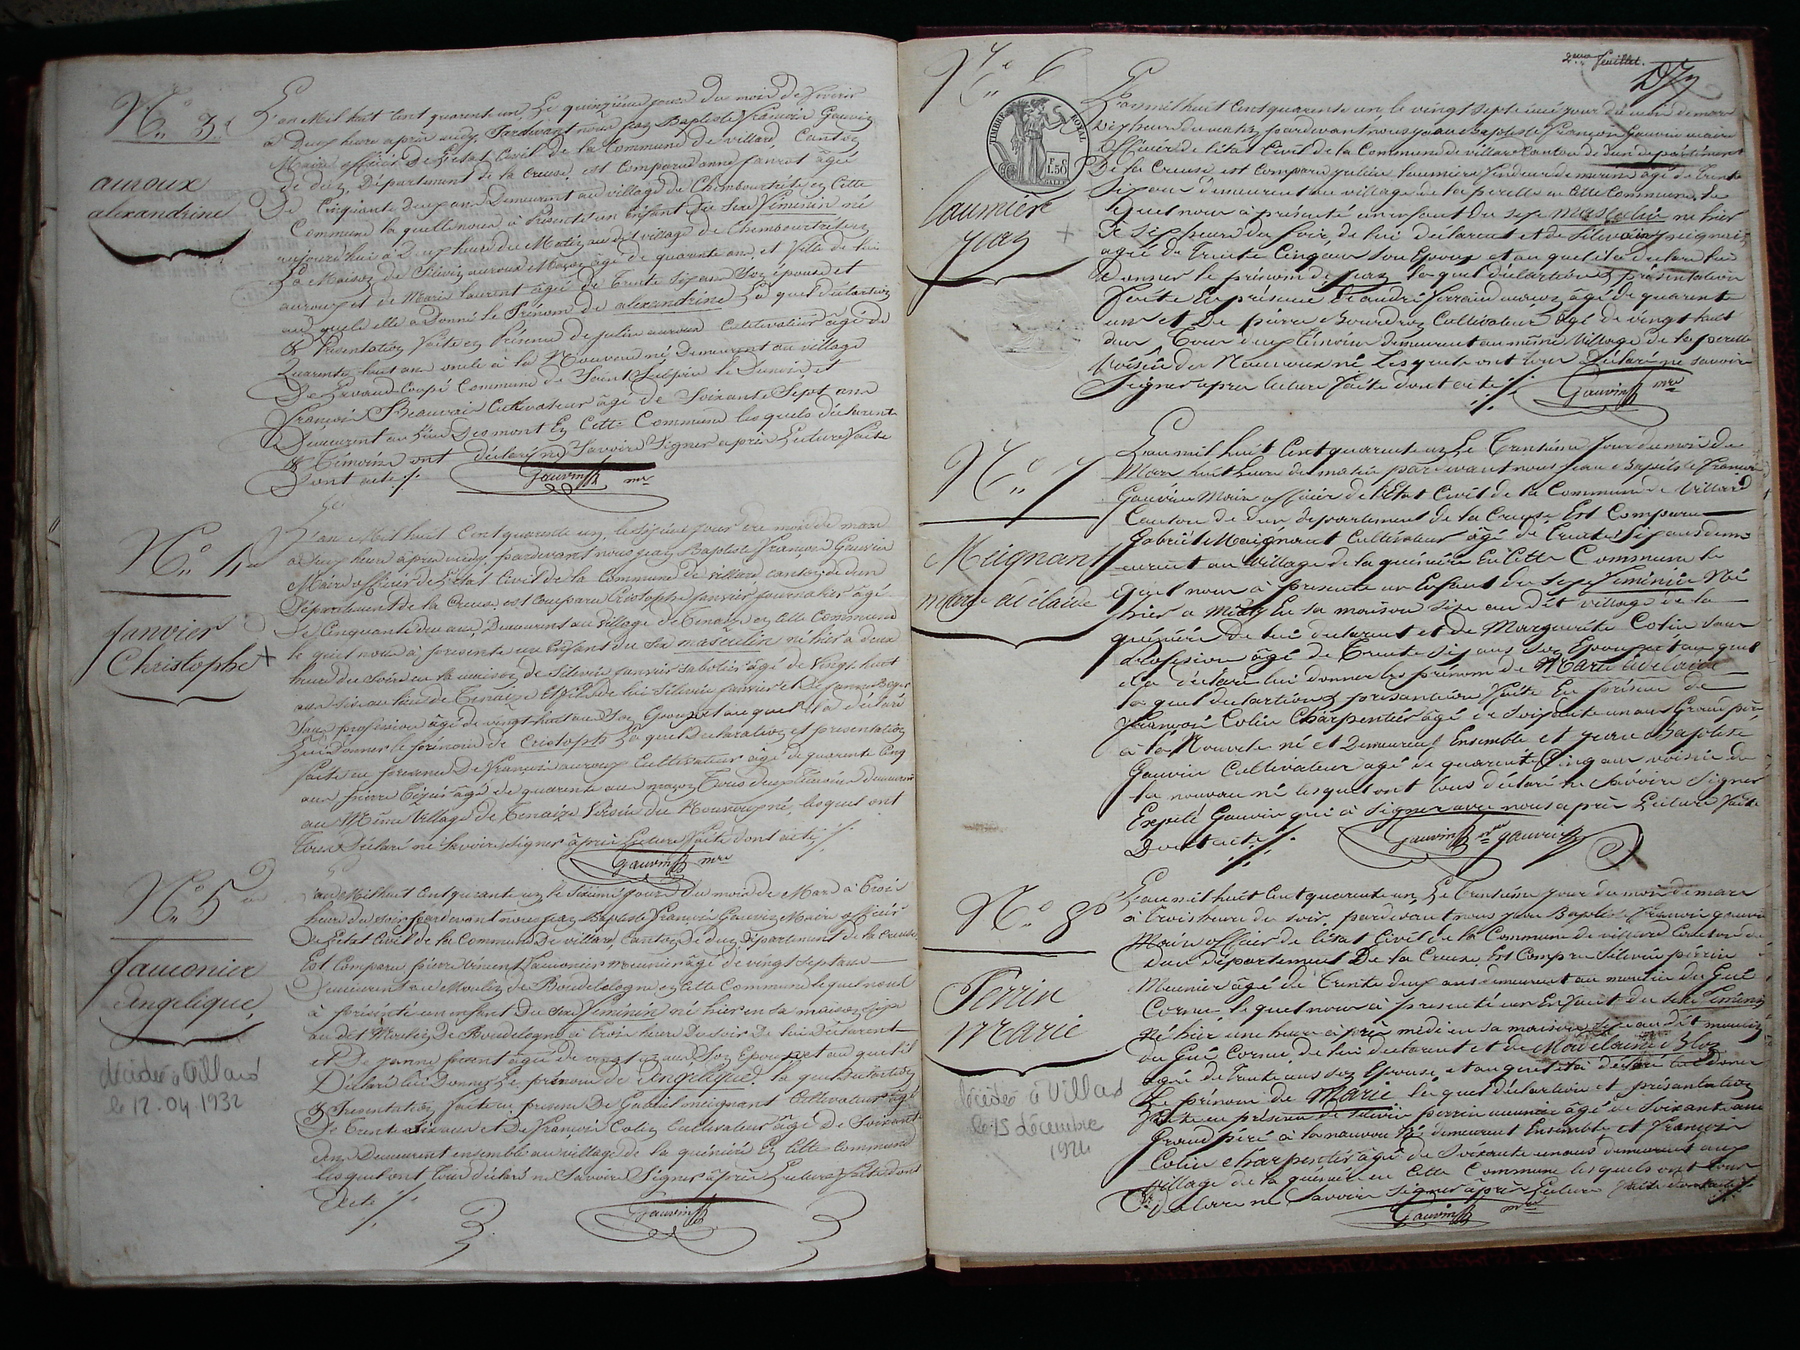 N° 3
auroux
alexandrine
L'an Mil huit Cent quarente un, Le quinzieme jour du mois de fevrier
à Deux heure après midy Pardevant nous jean Baptiste françois Gauvin
Maire officier de l'état Civil de la Commune de villard, Canton
de dun, Département de la Creuse, est Comparu anne janrot âgée
De Cinquante deux ans Demeurant au village de Chemboutrete en Cette
Commune laquelle nous à Présenté un Enfant du sexe féminin né
aujourd'hui à Deux heure du Matin au dit village de
La Maison de Silvin auroux Maçon âgé de quarente ans, et fille de lui
auroux et de Marie laurent âgée de Trente six ans Son épouse et
au quelle elle à Donné le Prénom de alexandrine Les quel déclaration
& Présentation faite en Présence de julin auroux Cultivateur âgé de
Quarente huit ans oncle à la Nouveau né Demeurant au village
De Lavaud Coupé Commune de Saint Sulpice le Dunois et
françois Beauvais Cultivateur âgé de Soixante Sept ans
Demeurant au Lieu Desmont En Cette Commune lesquels déclarent
& Témoins ont déclaré ne Savoire Signer après Lecture faite
Dont acte ./.
Gauvin mre
N° 4
Janvier
Christophe +
L'an Mil huit Cent quarente un, le Sixieme jour du mois de mars
à deux heure après midy, pardevant nous jean Baptiste françois Gauvin
Maire officier de l'état Civil de la Commune de villard canton de dun
Département de la Creuse, est comparu Cristophe janvier journalier âgé
De Cinquante deux ans, Demeurant au village de Tenaize en Cette Commune
le quel nous à presenté un Enfant du Sexe masculin né hier à deux
heure du Soir en la maison de Silvin janvier Sabotier âgé de Vingt huit
ans au lieu de Tenaize Et fils de lui Silvin janvier et De janne
Sans profession âgée de vingt huit ans Son Epouse et au quel il à déclaré
Lui donner le prénom de Cristoph Les quel Declaration et presentation
faite en presence De françois auroux Cultivateur âgé de quarente Cinq
ans pierre âgé de quarente ans maçon Tous deux Témoins demeurant
au Même Village de Tenaize Voisin du Nouveau né, lesquel ont
Tous Déclaré ne Savoire Signer après Lecture faite dont acte ./.
Gauvin mre
N° 5
Laumonier
Angelique
décédée à Villard
le 12.04.1932
L'an Mil huit Cent quarente un le Sixième jour du mois de Mars à Trois
heure du Soir, pardevant nous jean Baptiste françois Gauvin Maire officier
De l'état Civil de la Commune De villard, canton de dun Département de la Creuse
Est Comparu pierre vincent Laumonier meunier âgé de vingt Sept ans
Demeurant au Moulin de en Cette Commune lequel nous
à présenté un enfant du Sexe féminin né hier en sa maison Size
au dit Moulin De à Trois heure du Soir De lui Déclarent
et De janne âgée de vingt un ans Son Epouse et au quel il
Déclare lui Donner le prénom de Angelique. Les quel Declaration
& Presentation faite en presence De Gabriel meignant Cultivateur âgé
De Trente Six ans et De françois Colin Cultivateur âgé De Soixante
ans Demeurent ensemble au village de la quénerie En Cette commune
lesquel ont Tous déclaré ne Savoire Signer après Lecture faite dont
Acte ./.
Gauvin
2eme feuillet.
N° 6
TIMBRE ROYAL
1.50
Laumière
jean +
L'an mil huit Cent quarente un, le vingt Septieme jour du mois de mars
Dix heure du matin, pardevant nous jean Baptiste François Gauvin maire
Officier de l'état Civil de la Commune de villard Canton de dun département
De la Creuse est Comparu julien laumière âgé de trente
Six ans demeurant au village de la perelle en Cette Commune, le
Lequel nous à présenté un enfant du Sexe masculin né hier
à Six heure du Soir, de lui déclarent et de Silvaine meignant
agée de Trente Cinq ans Son Epouse et au quel il à déclaré lui
Donner le prénom de jean les quel déclaration & présentation
Faite En présence De andré maçon âgé de quarente
ans et De pierre Bourdrou Cultivateur âgé de vingt huit
ans Tous deux Témoins demeurent au même Village de la perelle
Voisin du Nouveau né Lesquels ont tous Déclaré ne Savoir
Signer après lecture faite dont acte ./.
Gauvin mre
N° 7
Meignant
marie adelaide
L'an mil huit Cent quarente un Le Trentième jour du mois de
Mars huit heure du matin pardevant nous jean Baptiste François
Gauvin Maire officier de l'État Civil de la Commune de Villard
Canton de dun département de la Creuse Est Comparu
Gabriel Meignant Cultivateur âgé de Trente Six ans dem-
eurant au Village de la quénerie En Cette Commune le
quel nous à presenté un Enfant du Sexe féminin Né
hier à Midy En Sa maison Size au dit village de la
quénerie De lui declarent et de Marguerite Colin Sans
Profession âgé de Trente Six ans Son Epouse et au quel
il à déclaré lui donner les prénom de Marie adelaide
les quel déclaration & présentation faite En présence De
françois Colin Charpentier âgé de Soixante un ans Grand père
à la Nouvele né et Demeurent Ensemble et jean Baptiste
Gauvin Cultivateur agé de quarente Cinq ans voisin de
la nouveau né lesquels ont tous déclaré ne Savoire Signer
Excepté Gauvin qui à Signer avec nous après Lecture faite
Dont acte ./.
Gauvin mre gauvin
N° 8
Perrin
Marie
décédée à Villard
le 15 décembre
1924
L'an mil huit Cent quarente un Le Trentième jour du mois de mars
à trois heure du soir, pardevant nous jean Baptiste françois gauvin
Maire officier de l'état Civil de la Commune de villard Canton de
dun département De la Creuse Est Comparu Silvin perrin
Meunier âgé de Trente deux ans demeurent au moulin du Gué
Cornu lequel nous à presenté un Enfant du Sexe féminin
Né hier une heure après midi en Sa maison Size au dit moulin
du Gué Cornu, de lui declarent et de
agée de Trente ans Son Epouse, et au quel il à déclaré lui donner
Le prénom de Marie les quel déclaration et présentation
faite en présence de Silvin perrin meunier âgé de Soixante ans
Grand père à la nouveau Né demeurent Ensemble et françois
Colin Charpentier âgé de Soixante un ans demeurent au
Village de la quénerie en Cette Commune lesquels ont tous
declaré ne Savoir Signer après Lecture faite dont acte ./.
Gauvin mre